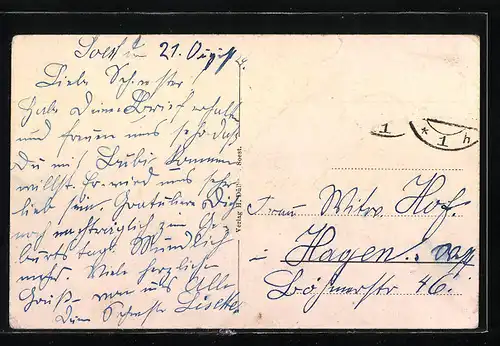 Soest den 21. August
Liebe Schwester
Habe Deinen Brief erhalten
und freuen uns sehr daß
Du mit kommen
willst. Es wird uns sehr
lieb sein. Gratuliere Dich
noch nachträglich zum Ge-
burtstage Mündlich
mehr. Viele herzliche
Grüße von uns Alle
Deine Schwester Lisette
Verlag H. Soest.
1
* 1 h
Frau Witw. Hof.
Hagen.
Böhmerstr 46.